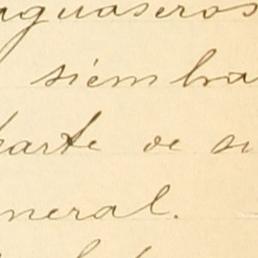 aguaseros
siémbra
parte de su
neral.